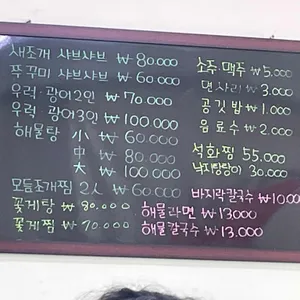 새조개 샤브샤브 ₩80.000
쭈꾸미 샤브샤브 ₩60.000
우럭·광어2인 ₩70.000
우럭 광어3인 ₩100.000
해물탕 小 ₩60.000
中 ₩80.000
大 ₩100.000
모듬조개찜 2人 ₩60.000
꽃게탕 ₩80.000
꽃게찜 ₩70.000
소주·맥주 ₩5.000
면사리 ₩3.000
공깃밥 ₩1.000
음료수 ₩2.000
석화찜 55.000
낙지탕탕이 30.000
바지락칼국수 ₩10.00
해물라면 ₩13000
해물칼국수 ₩13.000